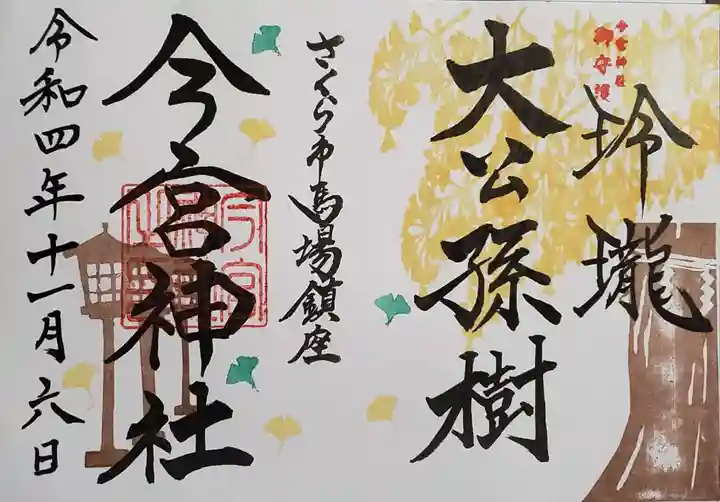 今宮神社
御守護
玲瓏
大公孫樹
さくら市馬場鎮座
今宮神社
令和四年十一月六日